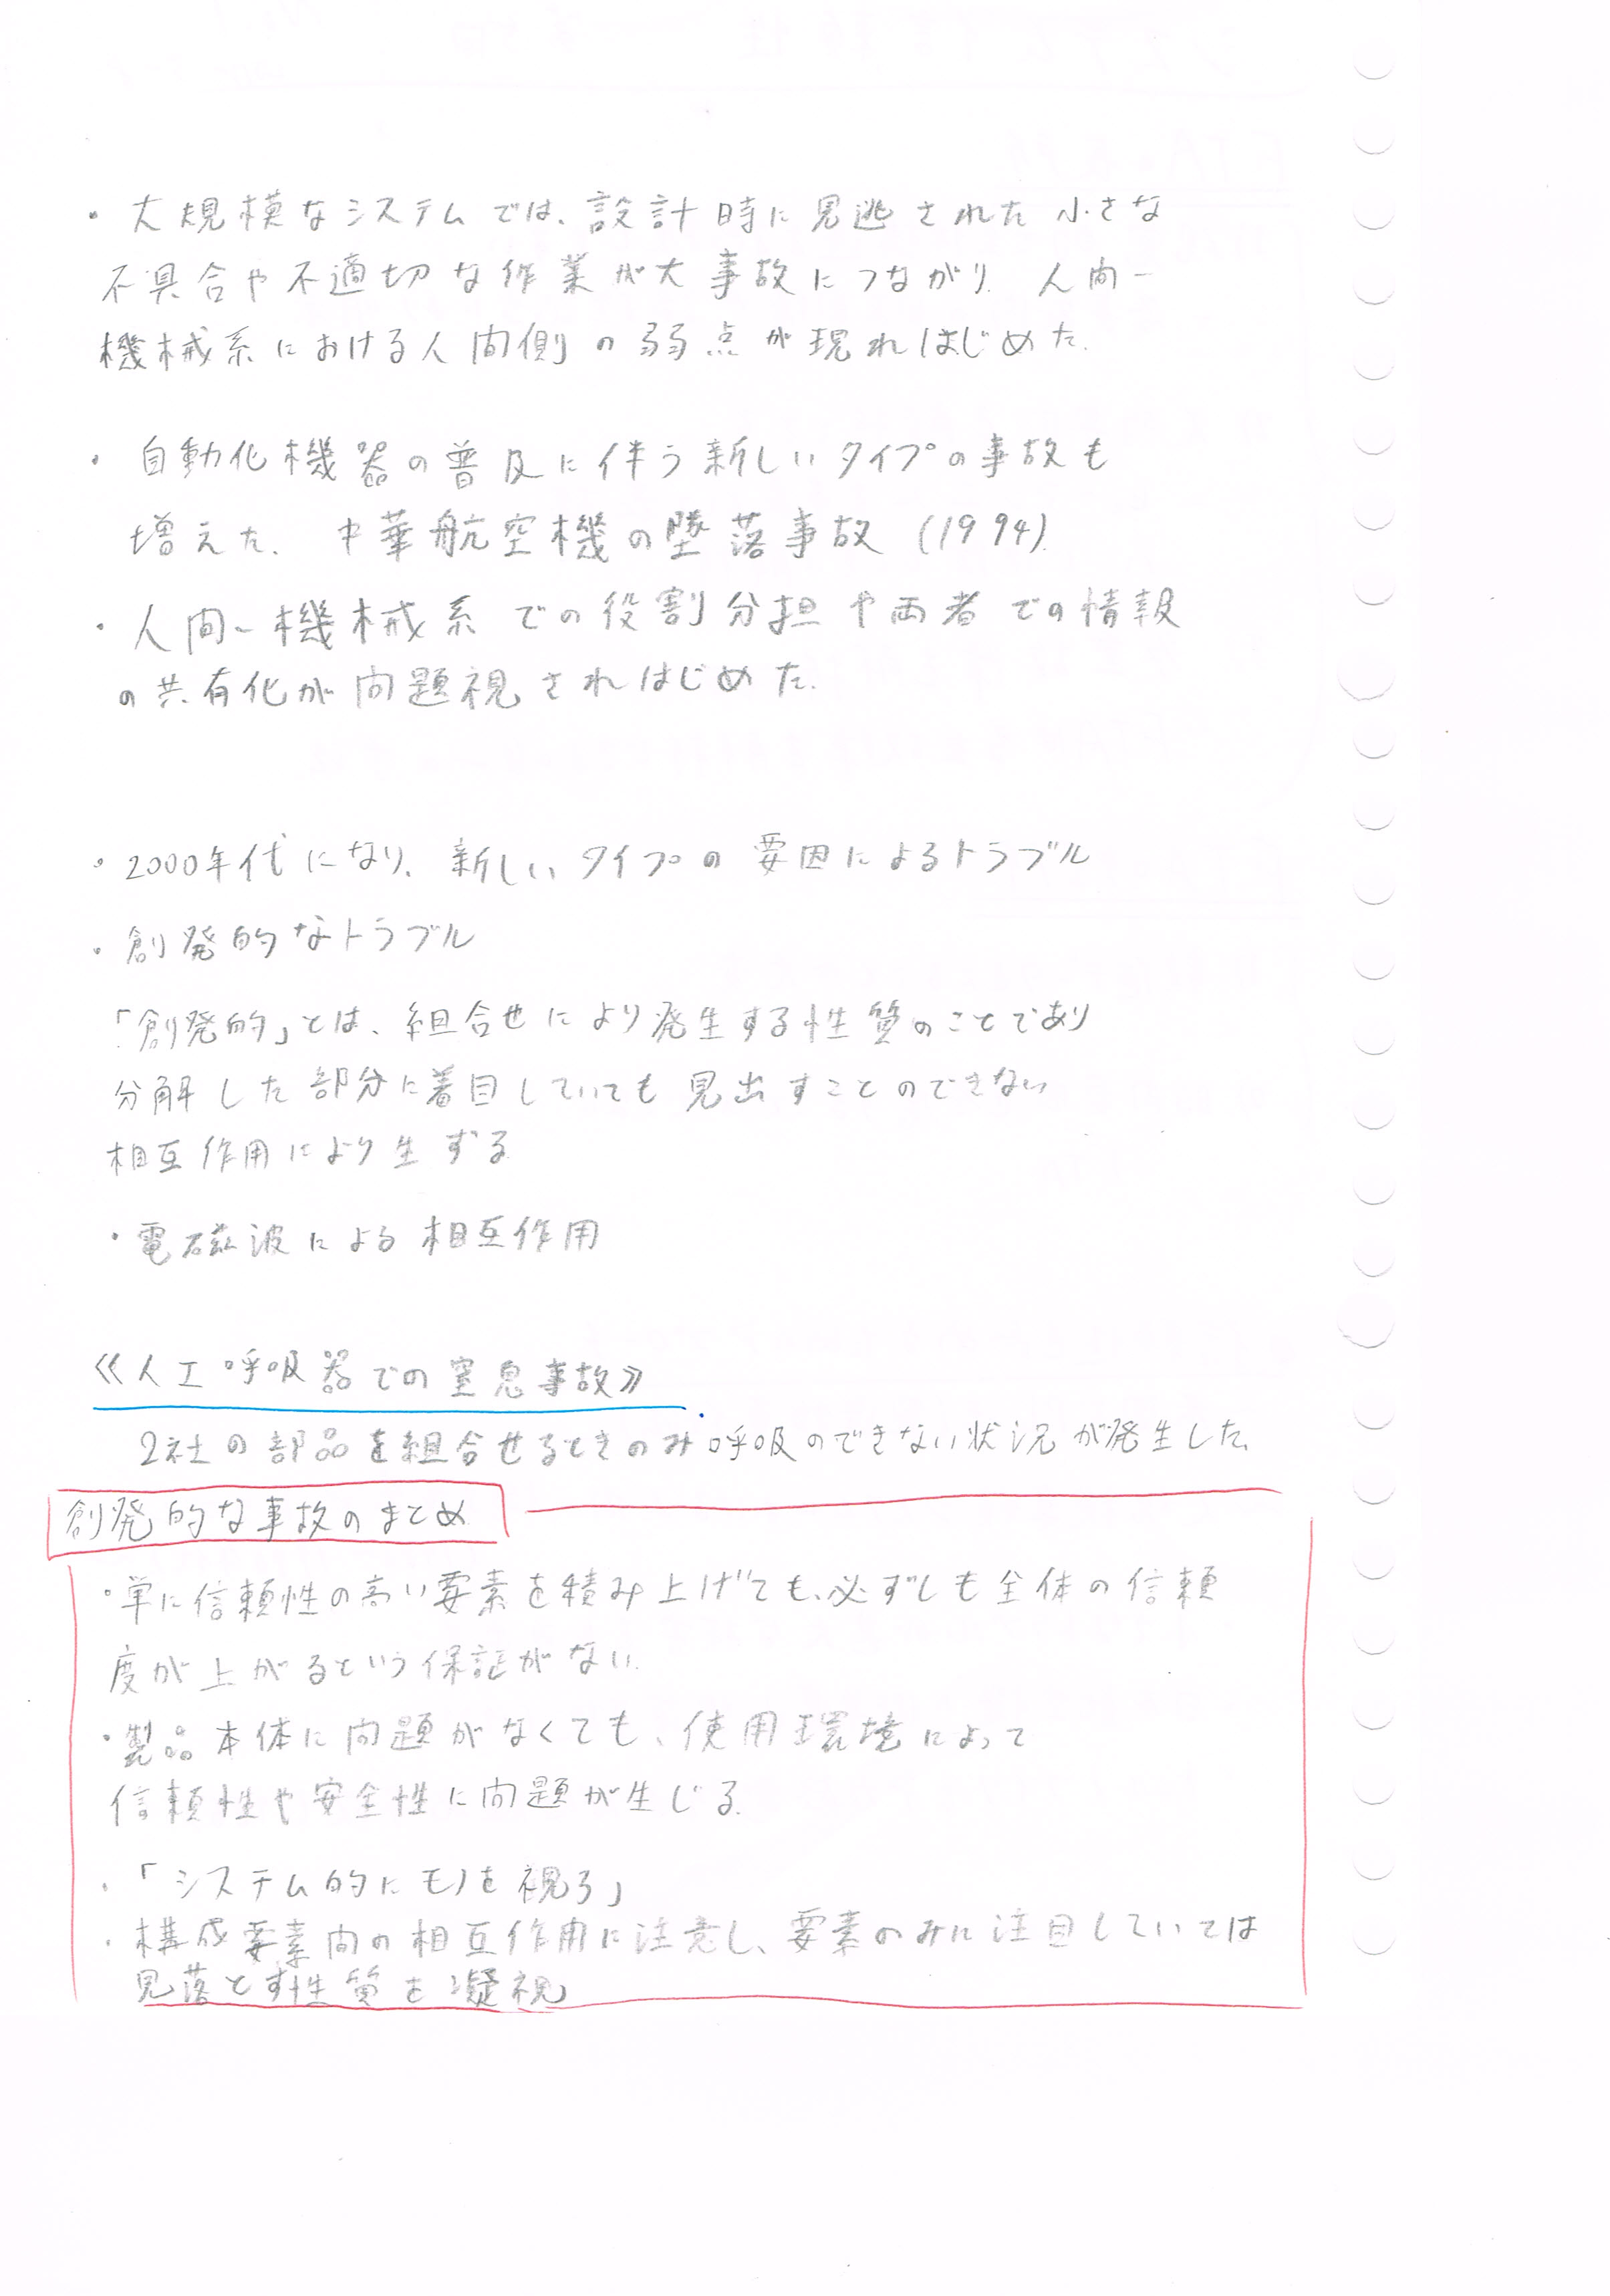 ・大規模なシステムでは、設計時に見逃された小さな
不具合や不適切な作業が大事故につながり、人間-
機械系における人間側の弱点が現れはじめた.
・自動化機器の普及に伴う新しいタイプの事故も
増えた. 中華航空機の墜落事故 (1994).
・人間-機械系での役割分担や両者での情報
の共有化が問題視されはじめた.
・2000年代になり、新しいタイプの要因によるトラブル
・創発的なトラブル
「創発的」とは、組合せにより発生する性質のことであり
分解した部分に着目していても見出すことのできない
相互作用により生ずる
・電磁波による相互作用
《人工呼吸器での窒息事故》
2社の部品を組合せるときのみ呼吸のできない状況が発生した、
創発的な事故のまとめ
・単に信頼性の高い要素を積み上げても、必ずしも全体の信頼
度が上がるという保証がない.
・製品本体に問題がなくても、使用環境によって
信頼性や安全性に問題が生じる.
・「システム的にモノを視ろ」
・構成要素間の相互作用に注意し、要素のみに注目していては
見落とす性質を凝視